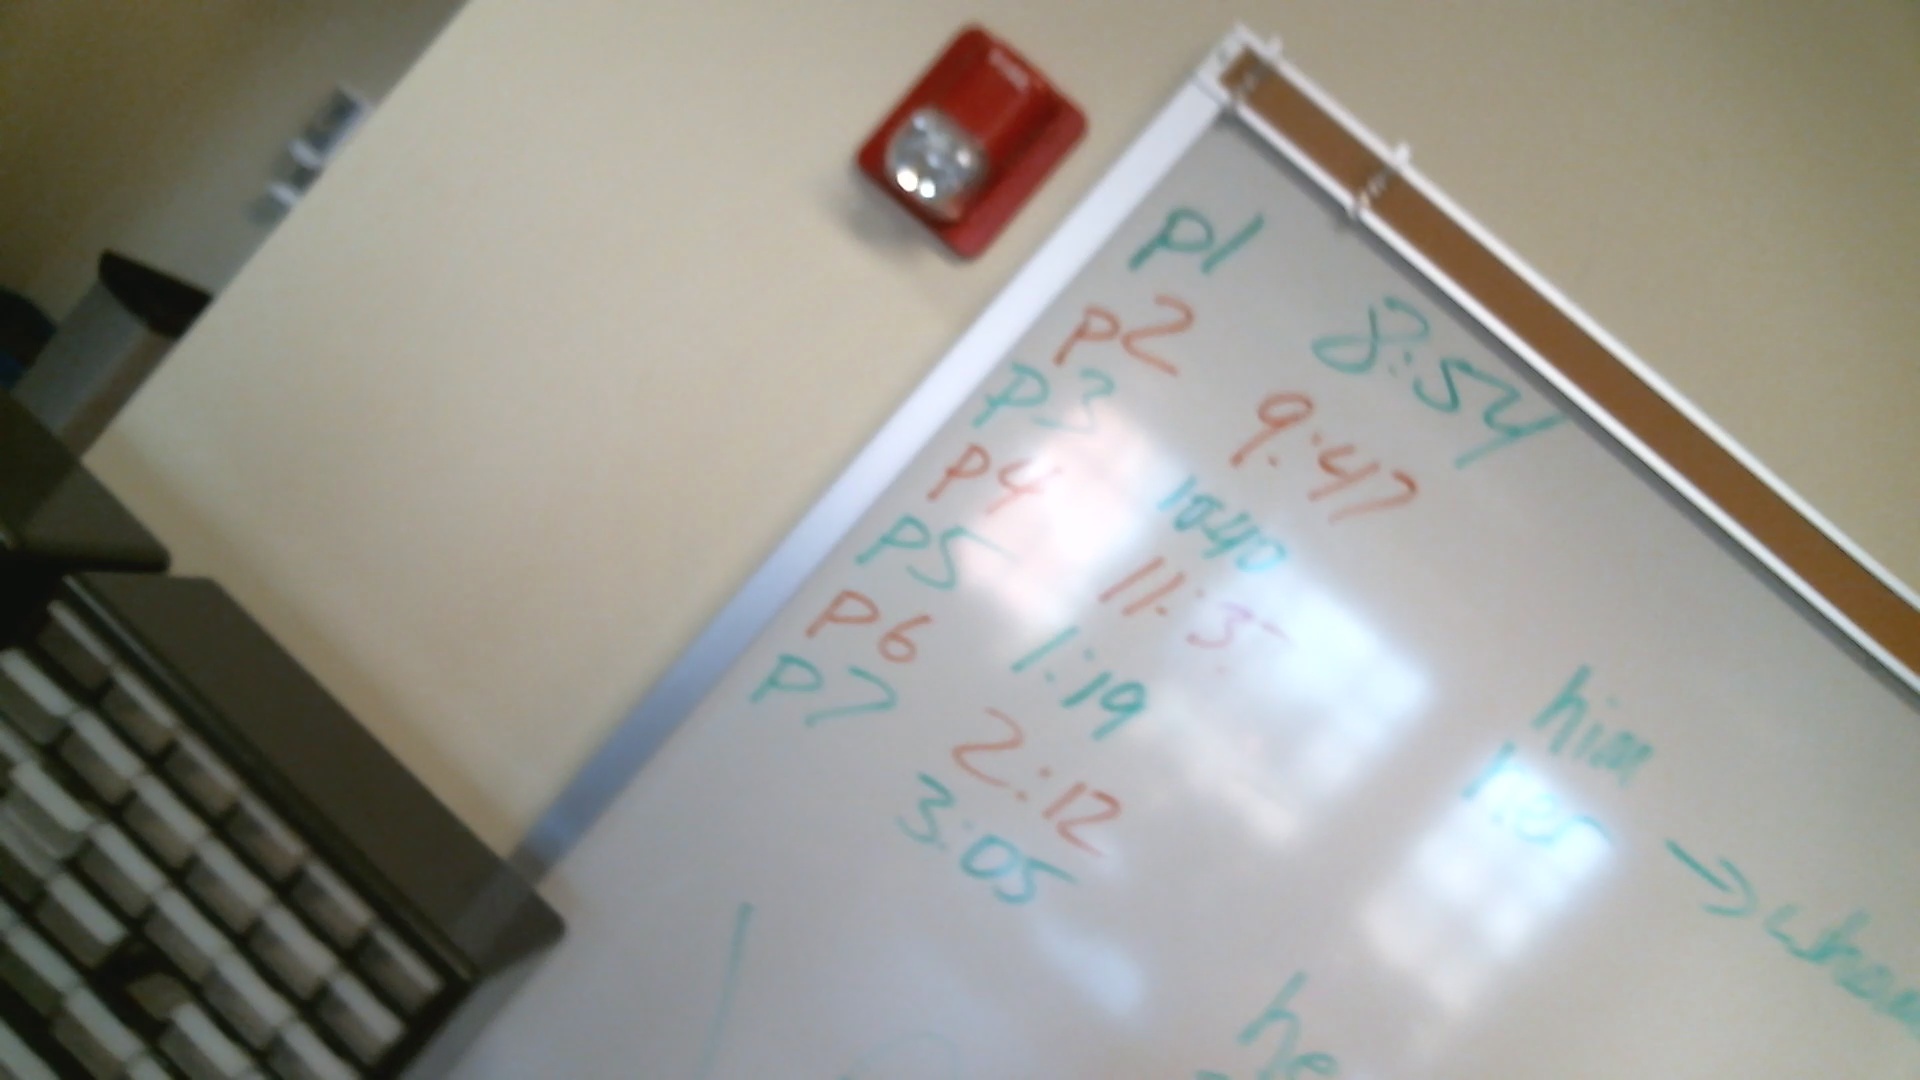 p1 8:54
p2 9:47
p3 10:40
p4
p5 1:19
p6 2:12
p7 3:05
him
her →
he